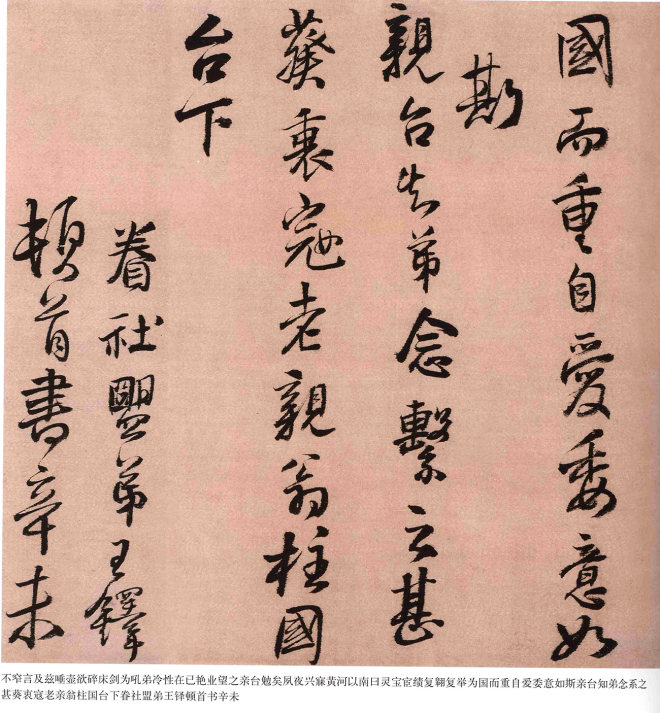 國而重自愛委意如
斯
親台知弟念繫云甚
葵衷寇老親翁柱國
台下
眷社盟弟王鐸
頓首書辛未
不窄言及兹唾壶欲碎床剑为吼弟冷性在已艳业望之亲台勉矣夙夜兴寐黄河以南曰灵宝宦绩复翱复举为国而重自爱委意如斯亲台知弟念系之
甚葵衷寇老亲翁柱国台下眷社盟弟王铎顿首书辛未